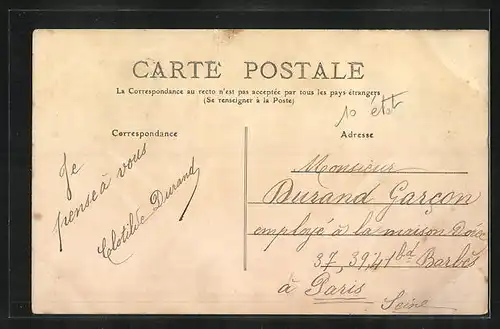 CARTE POSTALE
La Correspondance au recto n'est pas acceptée par tous les pays étrangers
(Se renseigner à la Poste)
10 état
Correspondance
Adresse
Je
pense à vous
Clotilde Durand
Monsieur
Durand Garçon
employé à la maison
37, 39, 41 bd Barbès
à Paris
Seine